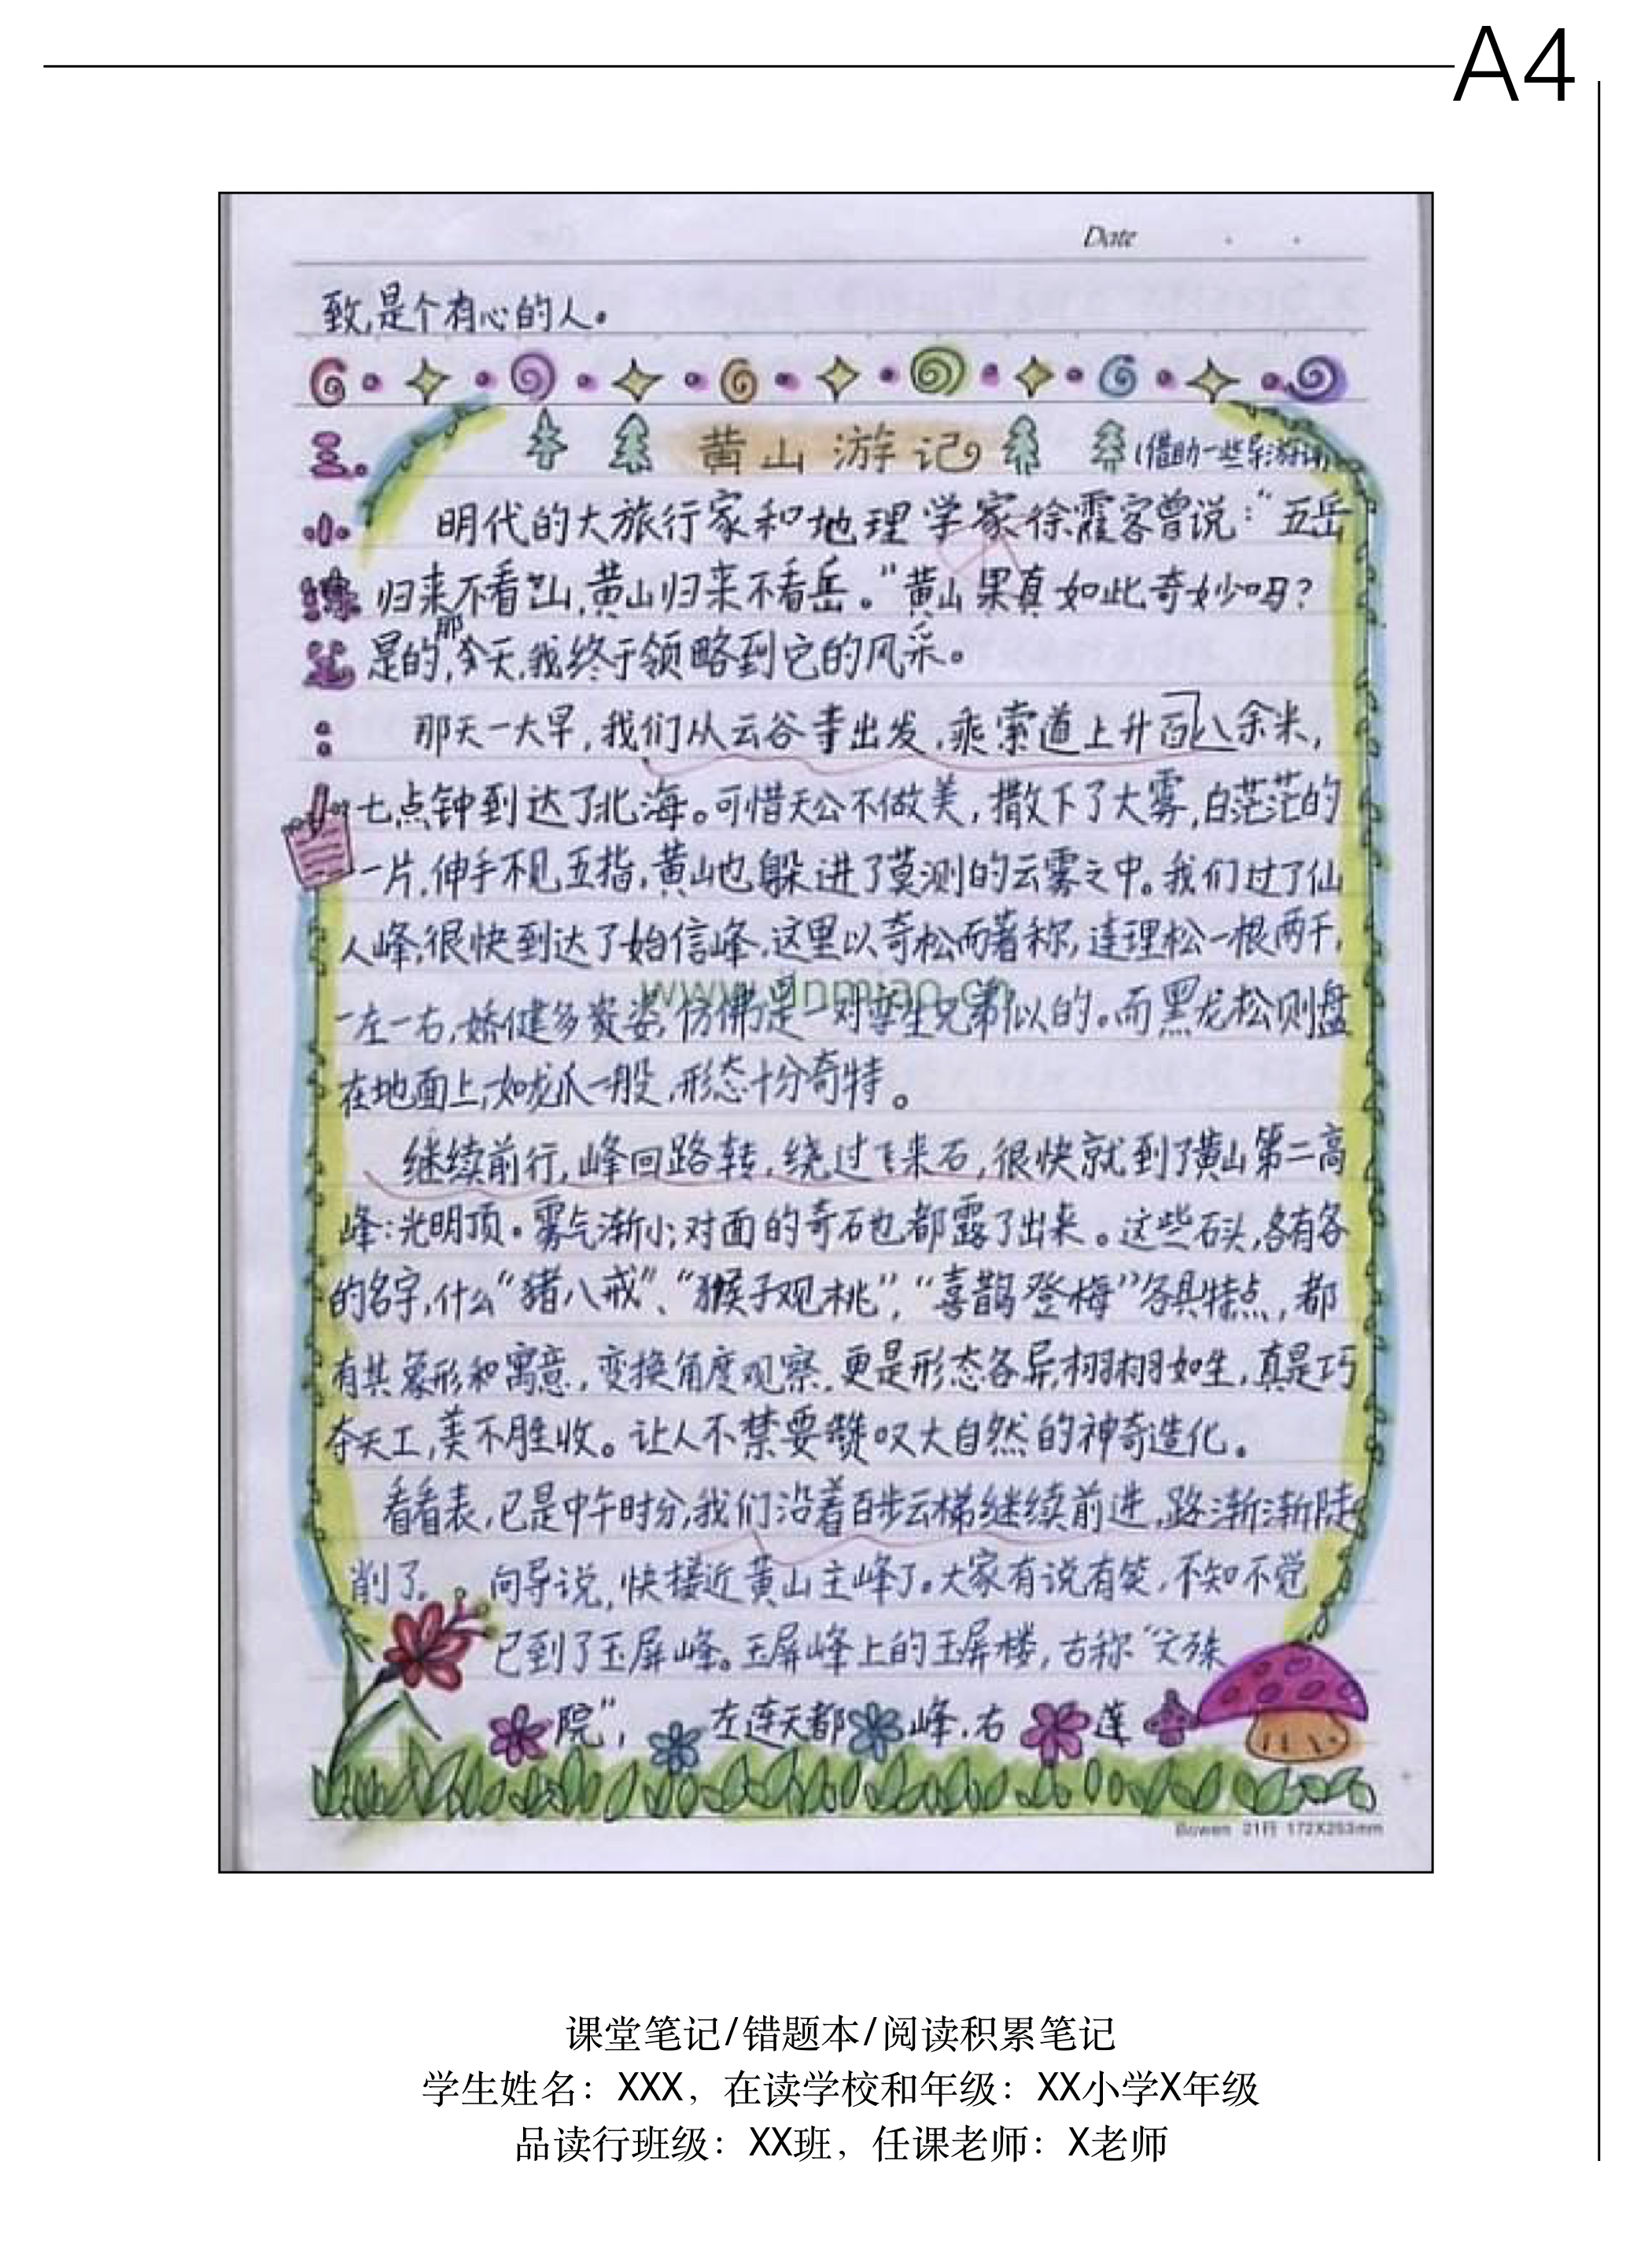 A4
Date
致,是个有心的人。
三.
小
练
笔
:
黄山游记
(借助一些导游词)
明代的大旅行家和地理学家徐霞客曾说:“五岳
归来不看山,黄山归来不看岳。”黄山果真如此奇妙吗?
那
是的,今天,我终于领略到它的风采。
那天一大早,我们从云谷寺出发,乘索道上升百八余米,
七点钟到达了北海。可惜天公不做美,撒下了大雾,白茫茫的
一片,伸手不见五指,黄山也躲进了莫测的云雾之中。我们过了仙
人峰,很快到达了始信峰,这里以奇松而著称,连理松一根两干,
一左一右,娇健多姿,仿佛是一对孪生兄弟似的。而黑龙松则盘
在地面上,如龙爪一般,形态十分奇特。
继续前行,峰回路转,绕过飞来石,很快就到了黄山第二高
峰:光明顶。雾气渐小,对面的奇石也都露了出来。这些石头,各有各
的名字,什么“猪八戒”、“猴子观桃”,“喜鹊登梅”各具特点,都
有其象形和寓意,变换角度观察,更是形态各异,栩栩如生,真是巧
夺天工,美不胜收。让人不禁要赞叹大自然的神奇造化。
看看表,已是中午时分,我们沿着百步云梯继续前进,路渐渐陡
削了。向导说,快接近黄山主峰了。大家有说有笑,不知不觉
已到了玉屏峰。玉屏峰上的玉屏楼,古称“文殊
院”,左连天都峰,右莲
Bowen 21行 172X253mm
课堂笔记/错题本/阅读积累笔记
学生姓名：XXX，在读学校和年级：XX小学X年级
品读行班级：XX班，任课老师：X老师